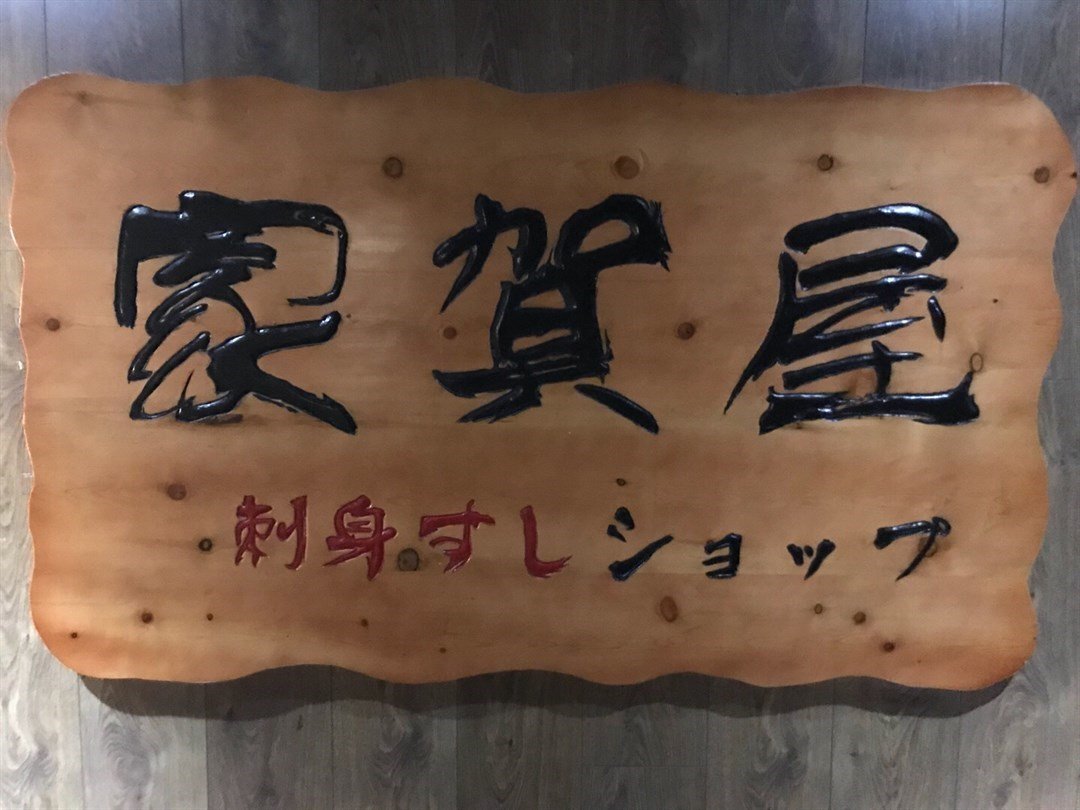 家賀屋
刺身すしショップ